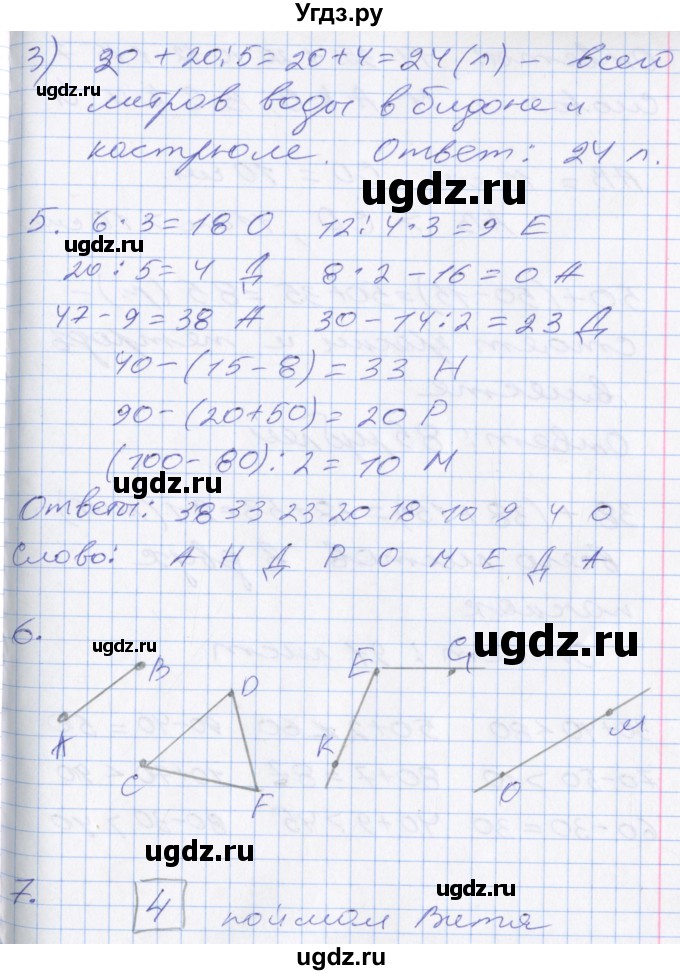 Угдз.ру
3) 20 + 20:5 = 20+4 = 24 (л) - всего
литров воды в бидоне и
кастрюле. Ответ: 24 л.
5. 6·3=18 О 12:4·3=9 Е
20:5=4 Д 8·2-16=0 А
47-9=38 А 30-14:2=23 Д
40-(15-8)=33 Н
90-(20+50)=20 Р
(100-80):2=10 М
Ответы: 38 33 23 20 18 10 9 4 0
Слово: А Н Д Р О М Е Д А
6.
B D E G
A C F K O M
7. 4 поймал Витя
ugdz.ru
ugdz.ru
ugdz.ru
ugdz.ru
ugdz.ru
ugdz.ru
ugdz.ru
ugdz.ru
ugdz.ru